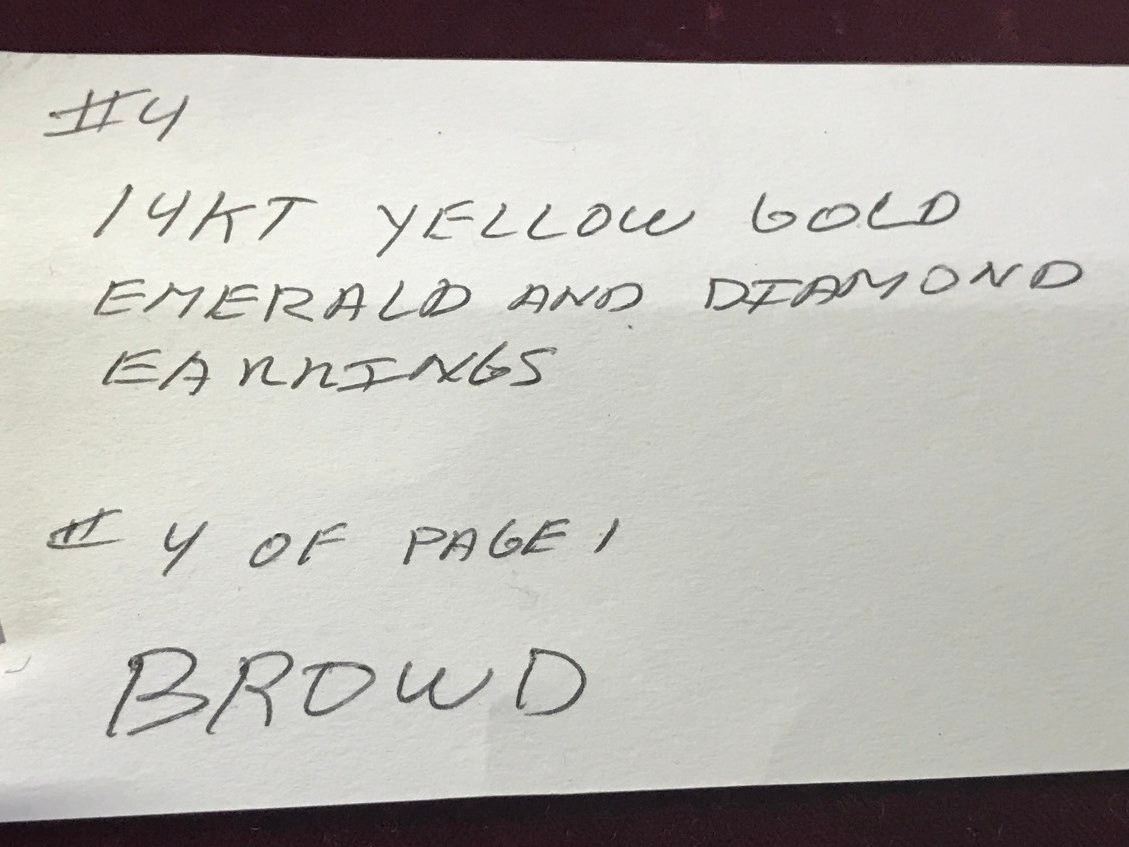 #4
14KT YELLOW GOLD
EMERALD AND DIAMOND
EARRINGS
# 4 OF PAGE 1
BROWD